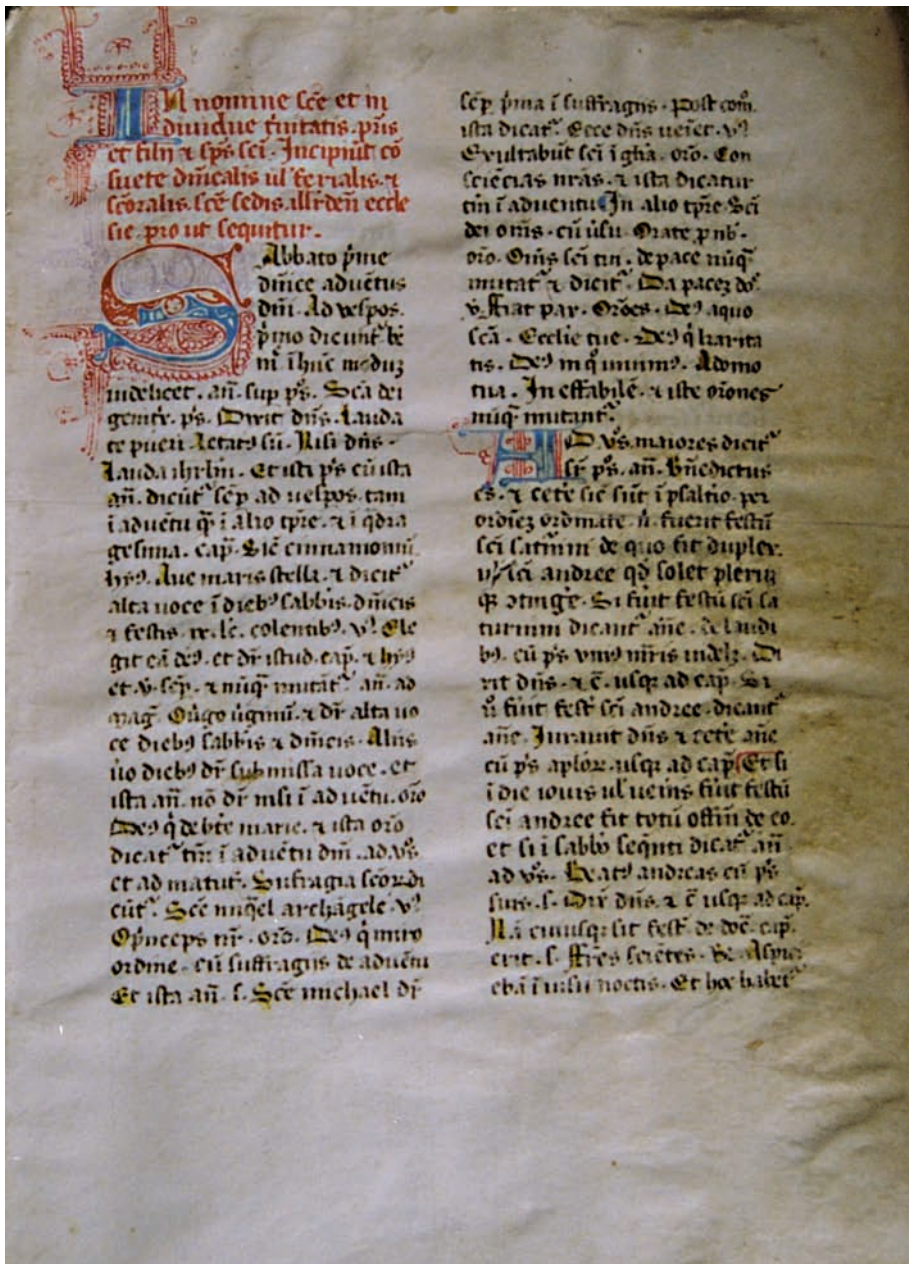 IN nomine sc̄e et in
diuidue t̓nitatis. pr̄is
et filij ⁊ sp̄s sc̄i. Incipiūt cō
suete dn̄icalis ul̓ ferialis. ⁊
sc̄oralis. sc̄e sedis. illr̄den̄ eccle
sie. pro ut sequitur.
SAbbato p̓me
dn̄ice aduētus
dn̄i. Ad vesp̓os.
p̓mo dicunt᷑ be
indelicet. añ. sup ps̓. Sc̄a dei
genit̓x. ps̓. Dixit dn̄s. Lauda
te pueri. Letat⁹ sū. Nisi dn̄s.
Lauda ihrl̄m. Et ista ps̓ cū ista
añ. dicūt᷑ sēp ad uesp̓os. tam
ī aduētu q̄ ī alio tp̄re. ⁊ ī q̓dra
gesima. cap̄. Sic̄ cinnamomū.
hy⁹. Aue maris stella. ⁊ dicit᷑
alta uoce ī dieb⁹ sabbīs. dn̄icis
⁊ festis. ix. lc̄. colentib⁹. v̓. Ele
git eā de⁹. et dr̄ istud. cap̄. ⁊ hy⁹
et v̓. sēp. ⁊ nūq̄ mutāt᷑ añ. ad
mag̓. O u̓go u̓ginū. ⁊ dr̄ alta uo
ce dieb⁹ sabbīs ⁊ dn̄icis. Alijs
u̓o dieb⁹ dr̄ submissa uoce. et
ista añ. nō dr̄ nisi ī aduētu. or̄o
De⁹ q̓ de bt̄e marie. ⁊ ista or̄o
dicat᷑ tm̄ ī aduētu dn̄i. ad. v̓s̓.
et ad matut̓. Sufragia sc̄or. di
cūt᷑. Sc̄e miq̓el archāgele. v̓.
O p̓nceps nr̄. or̄o. De⁹ q̓ miro
ordine. cū suffragijs de aduētu
Et ista añ. s. Sc̄e michael dr̄
sēp. p̓ma ī suffragijs. Post com̄.
ista dicat᷑. Ecce dn̄s ueīet. v̓.
Exultabūt sc̄i ī gl̄ia. or̄o. Con
sciēcias nr̄as. ⁊ ista dicatur
tm̄ ī aduentu. In alio tp̄re. Sc̄i
dei om̄s. cū u̓su. Orate p̄ nob̓.
or̄o. Om̄s sc̄i tui. de pace nūq̄
mutat᷑ ⁊ dicit᷑. Da pacez do̓.
v̓. Ffiat pax. Or̄oes. De⁹ a quo
sc̄a. Ecclīe tue. De⁹ q̓ karita
tis. De⁹ in q̓ uiuim⁹. Adomo
tua. Ineffabilē. ⁊ iste or̄ones
nūq̄ mutant᷑.
AD v̓s̓. maiores dicit᷑
ps̓. añ. Bn̄edictus
es. ⁊ cete̓ sic̄ sūt ī psaltio. per
ordiez ordinate. n̓. fuerit festū
sc̄i saturnini de quo fit duplex.
v̓l̓ sc̄i andree qd̄ solet pleriz
q̄ ↄtinge̓. Si fu̓it festū sc̄i sa
turnini dicant᷑ añe. de laudi
b⁹. cū ps̓. vni⁹ mr̄is indelz. Di
xit dn̄s. ⁊ c̄. usq̄ ad cap̄. Si
u̓ fu̓it fest̓. sc̄i andree. dicant᷑
añe. Iurauit dn̄s ⁊ cete̓ añe
cū ps̓ ap̄lor. usq̄ ad cap̄. Et si
ī die iouis ul̓ uen̄is fu̓it festū
sc̄i andree fit totū offm̄ de eo.
et si ī sabb̄o seq̄nti dicat᷑ añ
ad v̓s̓. Beat⁹ andreas cū ps̓
suis. s. Dix̄ dn̄s. ⁊ c̄ usq̄ ad cap̄.
Nā cuiusq̄ sit fest̓. de dōe. cap̄.
erit. s. Ffr̄es sciētes. ℞. Aspici
ebā ī uisu noctis. Et hoc habet᷑